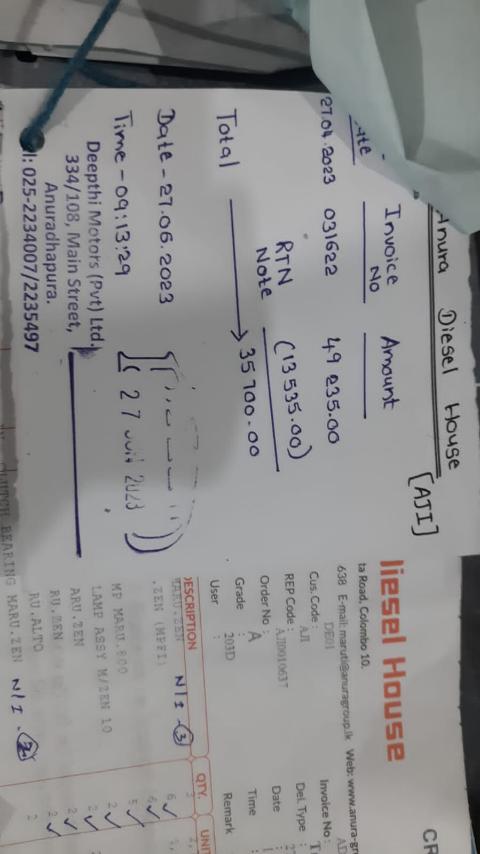 Anura Diesel House
[AJI]
Invoice No Amount
27.04.2023 031622 49 235.00
RTN Note (13 535.00)
Total → 35 700.00
Date - 27.06.2023
Time - 09:13:29
27 JUN 2023
Deepthi Motors (Pvt) Ltd.
334/108, Main Street,
Anuradhapura.
025-2234007/2235497
iesel House
ta Road, Colombo 10.
638 E-mail: maruti@anuragroup.lk Web: www.anura-gr
CR
Cus. Code : DE01
Invoice No :
REP Code : AJI
Del. Type :
Order No : AJI0010637
Date :
Grade : A
Time :
User : 203D
Remark
DESCRIPTION QTY. UNIT
MARU.ZEN
.ZEN (MPFI) N/I - 3 6
MP MARU.800 5
LAMP ASSY M/ZEN 10 2
ARU.ZEN 2
RU.ZEN 2
RU.ALTO 2
CLUTCH BEARING MARU.ZEN N/I - 2